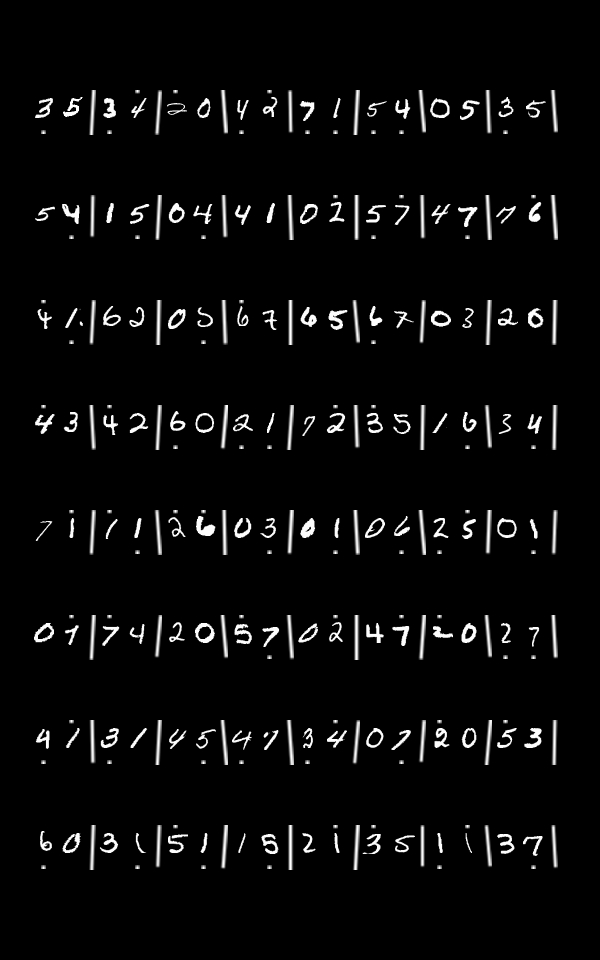 3 5 | 3 4 | 2 0 | 4 2 | 7 1 | 5 4 | 0 5 | 3 5 |
5 4 | 1 5 | 0 4 | 4 1 | 0 2 | 5 7 | 4 7 | 7 6 |
4 1 | 6 2 | 0 5 | 6 7 | 6 5 | 6 7 | 0 3 | 2 0 |
4 3 | 4 2 | 6 0 | 2 1 | 7 2 | 3 5 | 1 6 | 3 4 |
7 1 | 1 1 | 2 6 | 0 3 | 0 1 | 0 6 | 2 5 | 0 1 |
0 7 | 7 4 | 2 0 | 5 7 | 0 2 | 4 7 | 2 0 | 2 7 |
4 1 | 3 1 | 4 5 | 4 7 | 3 4 | 0 7 | 2 0 | 5 3 |
6 0 | 3 1 | 5 1 | 1 5 | 2 1 | 3 5 | 1 1 | 3 7 |